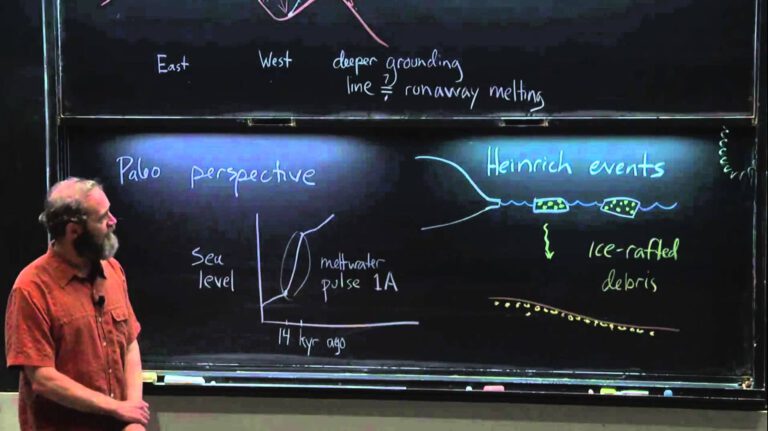 East
West
deeper grounding
line ≟ runaway melting
Paleo perspective
Heinrich events
Sea
level
meltwater
pulse 1A
14 kyr ago
Ice-rafted
debris